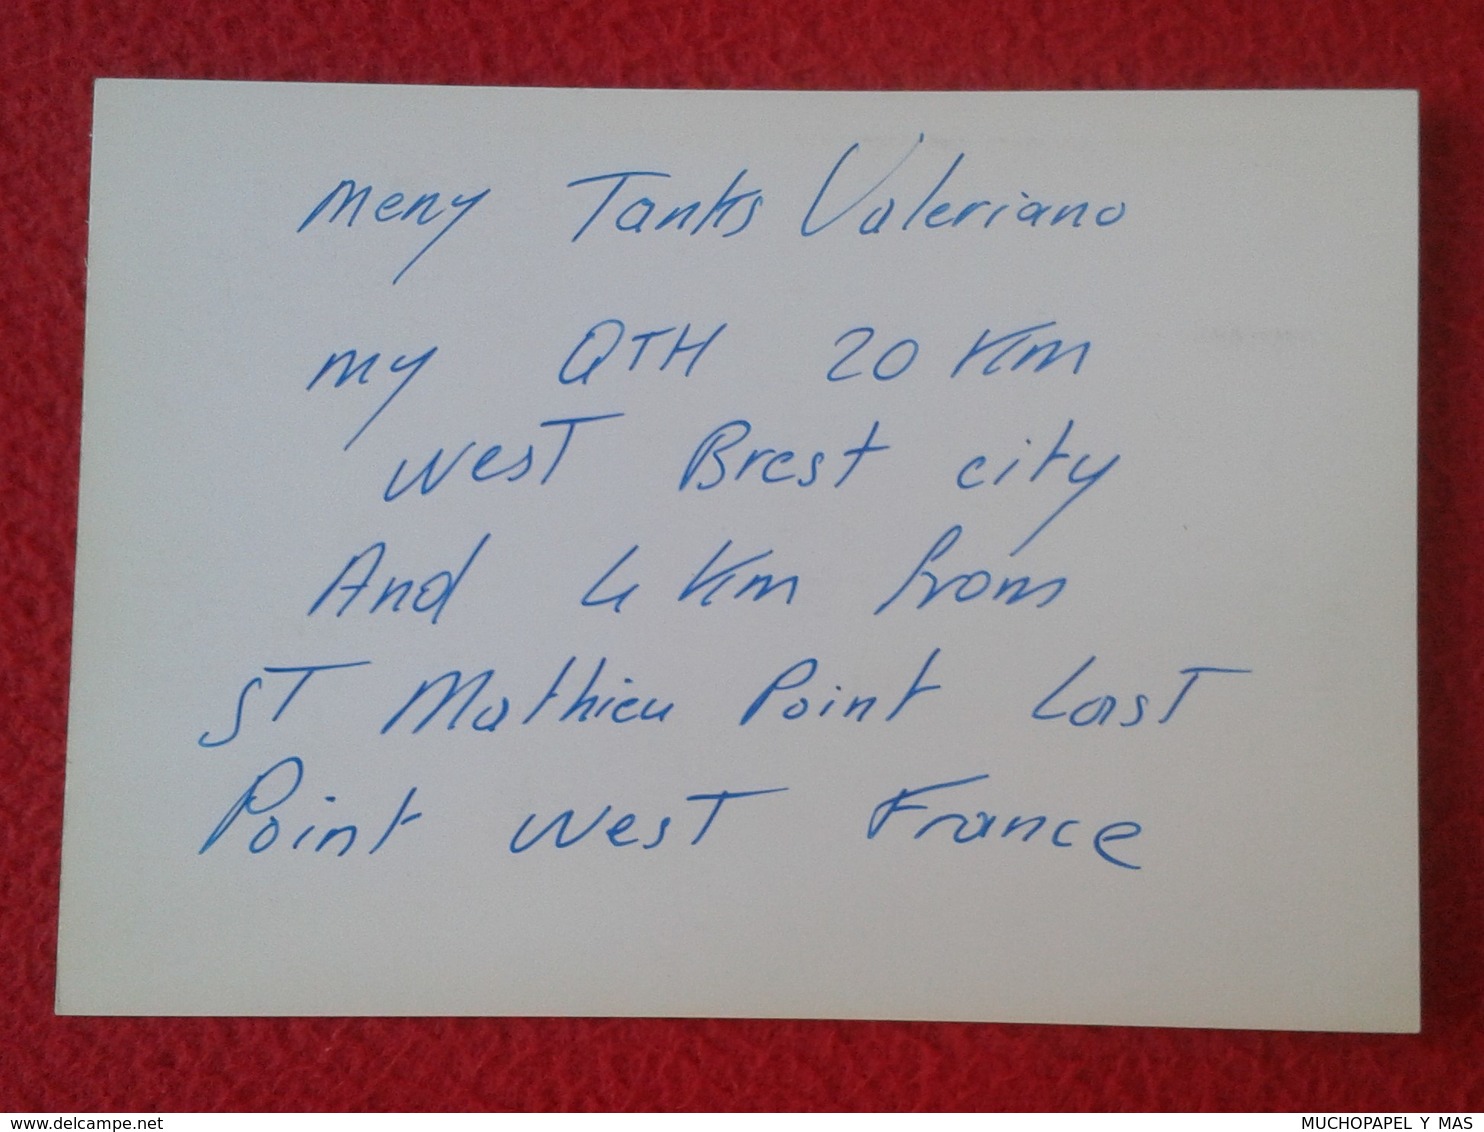 meny Tanks Valeriano
my QTH 20 Km
west Brest city
And 4 Km from
ST Mathieu Point Last
Point west France
www.delcampe.net
MUCHOPAPEL Y MAS